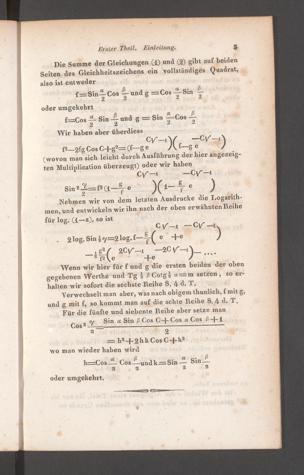 Erster Theil. Einleitung. 5
Die Summe der Gleichungen (1) und (2) gibt auf beiden
Seiten des Gleichheitszeichens ein vollständiges Quadrat,
also ist entweder
f = Sin α/2 Cos β/2 und g = Cos α/2 Sin β/2
oder umgekehrt
f = Cos α/2 Sin β/2 und g = Sin α/2 Cos β/2
Wir haben aber überdiess
f² − 2fg Cos C + g² = (f − g e^{C√−1})(f − g e^{−C√−1})
(wovon man sich leicht durch Ausführung der hier angezeig-
ten Multiplication überzeugt) oder wir haben
Sin² γ/2 = f² (1 − g/f e^{C√−1})(1 − g/f e^{−C√−1})
Nehmen wir von dem letzten Ausdrucke die Logarith-
men, und entwickeln wir ihn nach der oben erwähnten Reihe
für log. (1−z), so ist
2 log. Sin ½ γ = 2 log. f − g/f (e^{C√−1} + e^{−C√−1})
− ½ g²/f² (e^{2C√−1} + e^{−2C√−1}) − ....
Wenn wir hier für f und g die ersten beiden der oben
gegebenen Werthe und Tg ½ β Cotg ½ α = m setzen, so er-
halten wir sofort die sechste Reihe S. 4 d. T.
Verwechselt man aber, was nach obigem thunlich, f mit g,
und g mit f, so kommt man auf die achte Reihe S. 4 d. T.
Für die fünfte und siebente Reihe aber setze man
Cos² γ/2 = Sin α Sin β Cos C + Cos α Cos β + 1 / 2
= h² + 2hk Cos C + k²
wo man wieder haben wird
h = Cos α/2 Cos β/2 und k = Sin α/2 Sin β/2
oder umgekehrt.